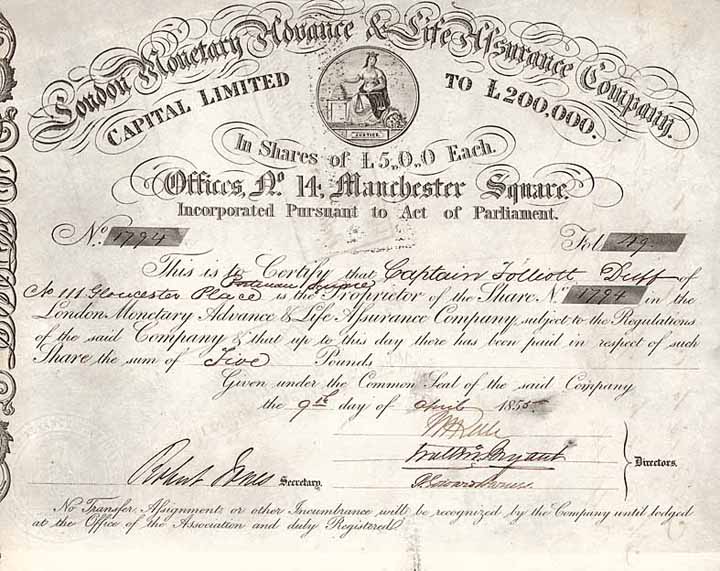 London Monetary Advance & Life Assurance Company,
CAPITAL LIMITED TO £200,000.
JUSTICE
In Shares of £5,,0,,0 Each.
Offices, No. 14, Manchester Square.
Incorporated Pursuant to Act of Parliament.
No. 1794 Fol. 49
This is to Certify that Captain Folliott Duff of
Portman Square
No 111 Gloucester Place is the Proprietor of the Share No. 1794 in the
London Monetary Advance & Life Assurance Company, subject to the Regulations
of the said Company & that up to this day there has been paid in respect of such
Share the sum of Five Pounds
Given under the Common Seal of the said Company
the 9th day of April 1855
Directors.
Robert Jones Secretary.
No Transfer, Assignment or other Incumbrance will be recognized by the Company until lodged
at the Office of the Association and duly Registered.